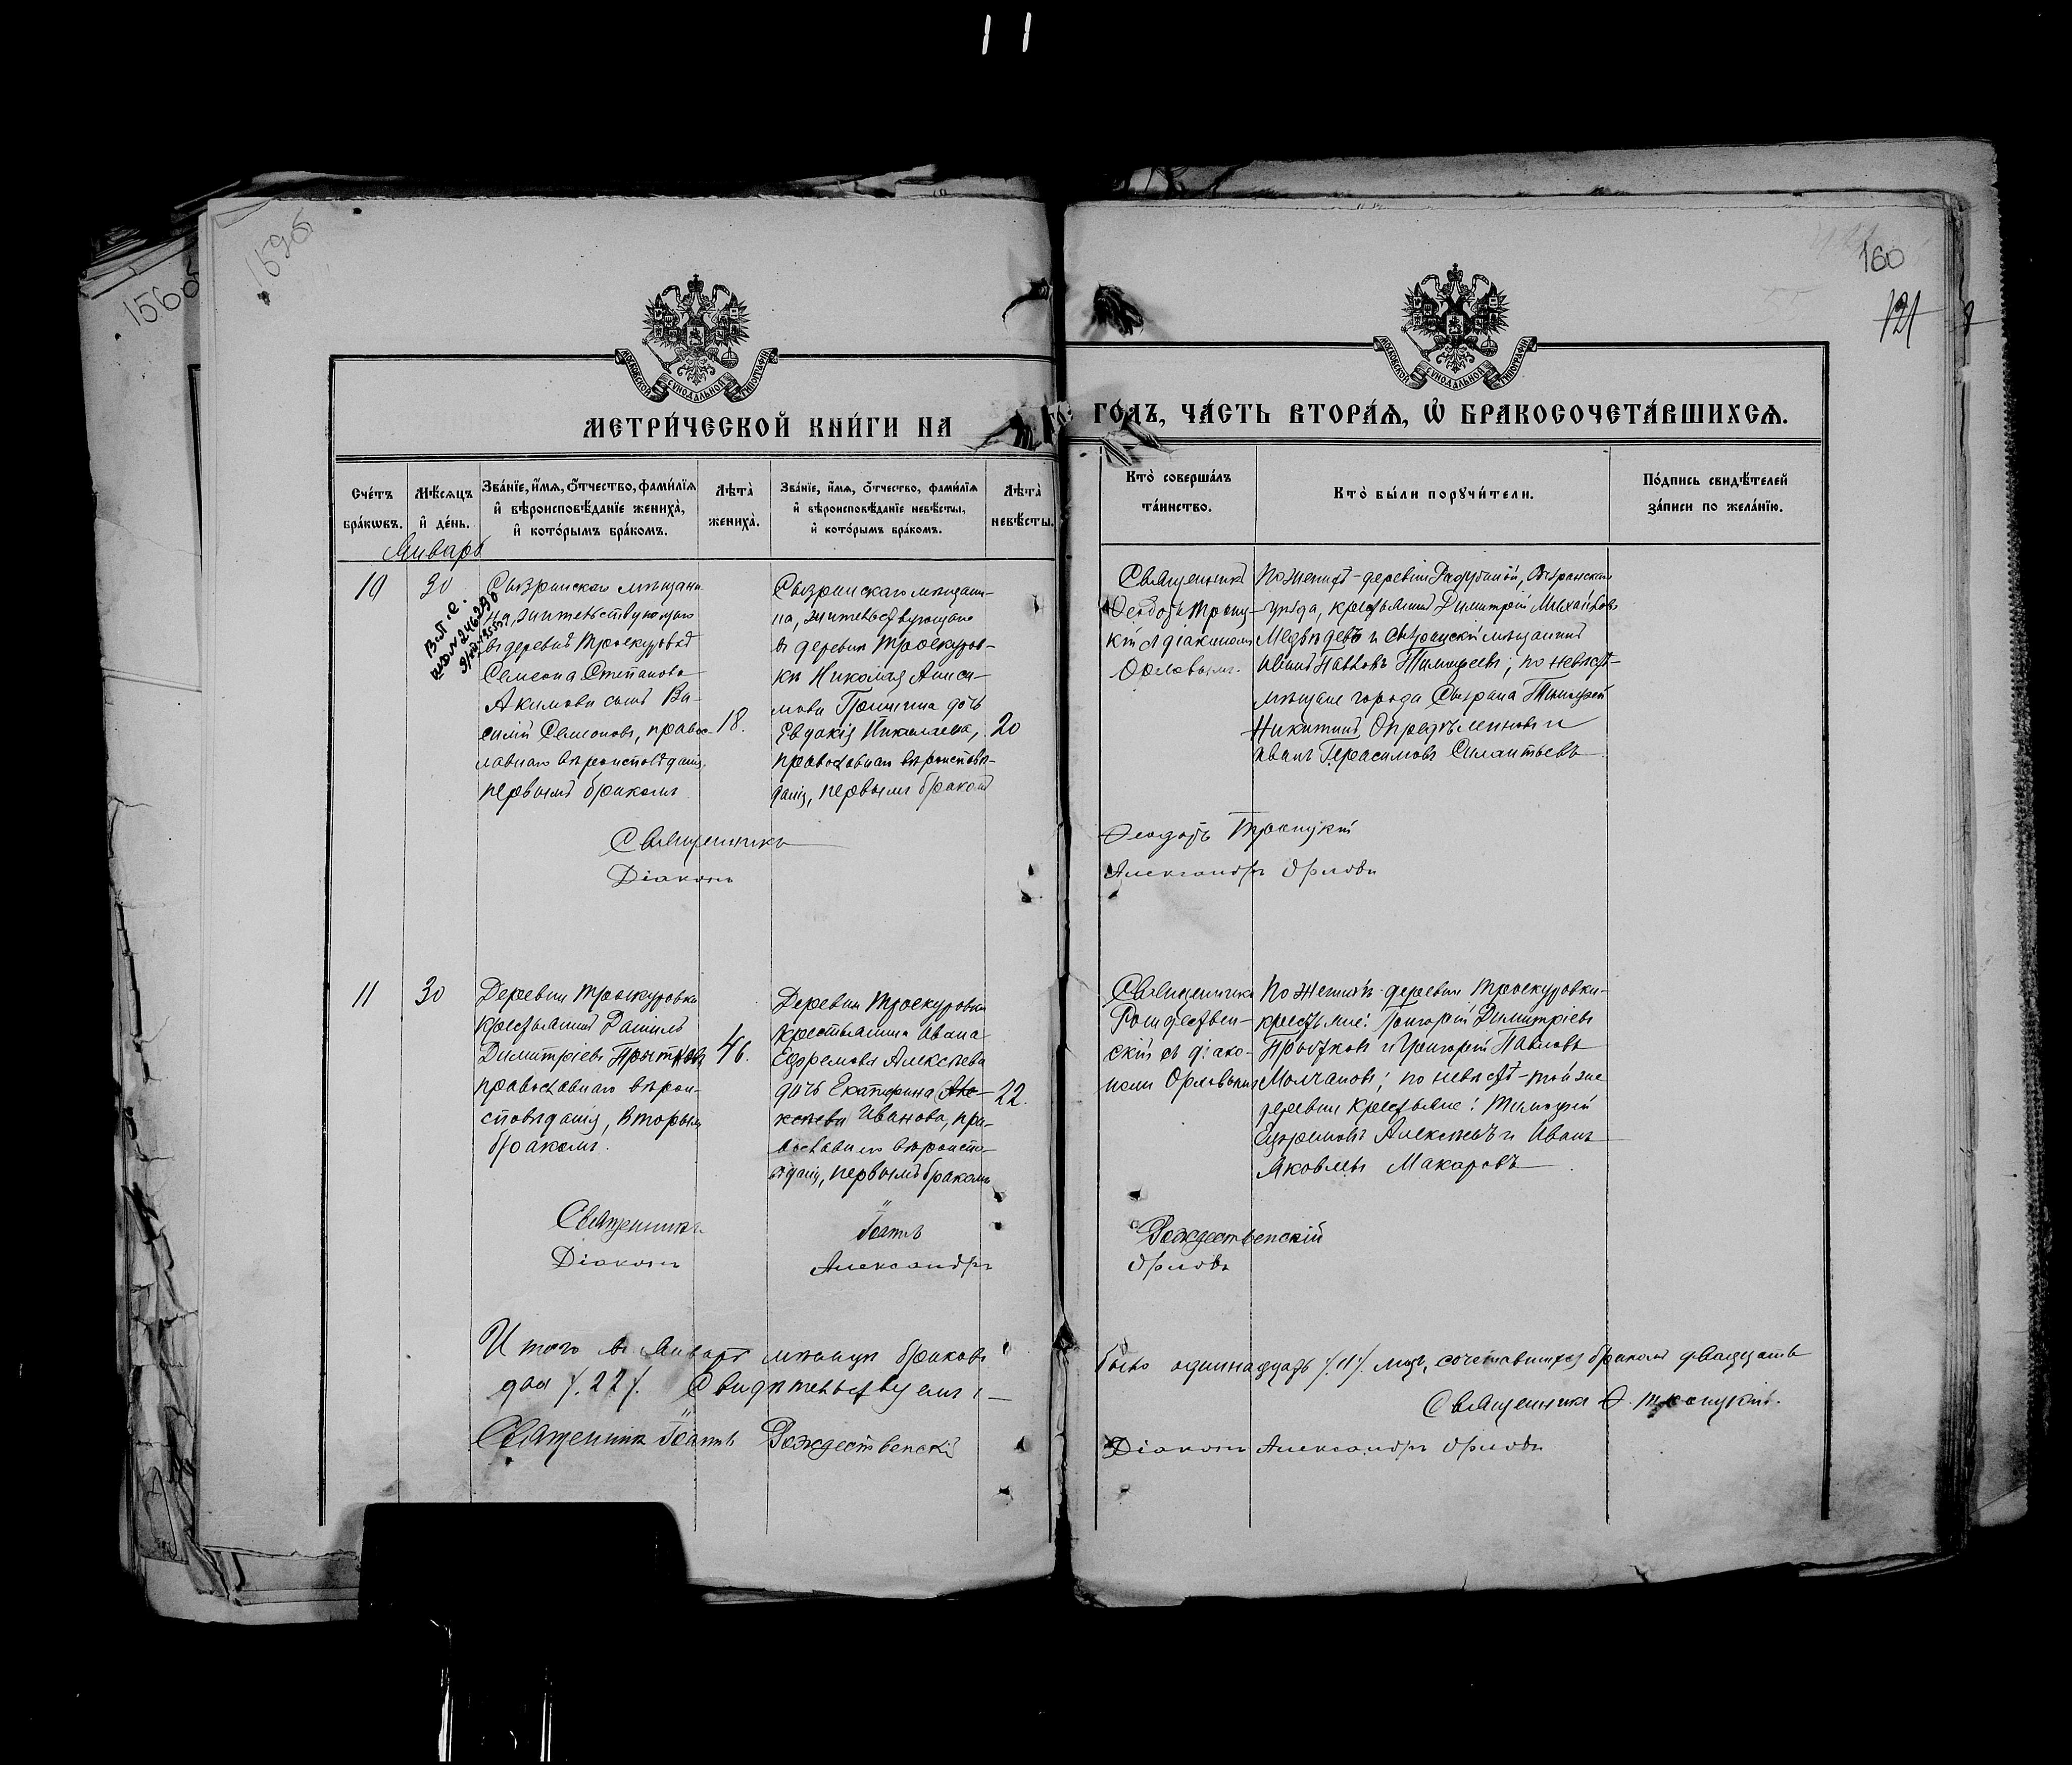 1596
1566
160
121
8
МОСКОВСКОЙ СУНОДАЛЬНОЙ ТИПОГРАФІИ
МОСКОВСКОЙ СУНОДАЛЬНОЙ ТИПОГРАФІИ
МЕТРИ́ЧЕСКОЙ КНИ́ГИ НА
ГО́ДЪ, ЧА́СТЬ ВТОРА́Я, Ѡ БРАКОСОЧЕТА́ВШИХСЯ.
Сче́тъ бра́кѡвъ.
Мѣ́сяцъ и҆ де́нь.
Зва́нїе, и҆́мя, ѻ҆́тчество, фами́лїя и҆ вѣроисповѣ́данїе жениха̀, и҆ кото́рымъ бра́комъ.
Лѣта̀ жениха̀.
Зва́нїе, и҆́мя, ѻ҆́тчество, фами́лїя и҆ вѣроисповѣ́данїе невѣ́сты, и҆ кото́рымъ бра́комъ.
Лѣта̀ невѣ́сты.
Кто̀ соверша́лъ та́инство.
Кто̀ бы́ли порꙋчи́тели.
По́дпись свидѣ́телей за́писи по жела́нїю.
Январь
10
30
Сызранскаго мѣщани-
на, жительствующаго
въ деревнѣ Троекуровкѣ
Самсона Степанова
Акимова сынъ Ва-
силій Самсоновъ, правос-
лавнаго вѣроисповѣданія,
первымъ бракомъ
18.
Сызранскаго мѣщани-
на, жительствующаго
въ деревнѣ Троекуров-
кѣ Николая Аниси-
мова дочь
Евдокія Николаева,
православнаго вѣроисповѣ-
данія, первымъ бракомъ
20
Священникъ
Ѳеодоръ Троиц-
кій съ діакономъ
Орловымъ.
По женихѣ - деревни Сызранскаго
уѣзда, крестьянинъ Димитрій Михайловъ
Медвѣдевъ и Сызранскій мѣщанинъ
Иванъ Павловъ Тимоѳеевъ; по невѣстѣ-
мѣщане города Сызрана Тимоѳей
Никитинъ Опредѣленновъ и
Иванъ Герасимовъ Силантьевъ
Священникъ Ѳеодоръ Троицкій
Діаконъ Александръ Орловъ
11
30
Деревни Троекуровки
крестьянинъ Даніилъ
Димитріевъ Прытковъ
православнаго вѣрои-
сповѣданія, вторымъ
бракомъ.
46.
Деревни Троекуровки
крестьянина Ивана
Ефремова Алексѣева
дочь Екатерина Але-
ксѣева Иванова, пра-
вославнаго вѣроиспо-
вѣданія, первымъ бракомъ
22.
Священникъ
Рождествен-
скій съ діако-
номъ Орловымъ
По женихѣ - деревни Троекуровки-
крестьяне: Григорій Димитріевъ
Прытковъ и Григорій Павловъ
Молчановъ; по невѣстѣ - той же
деревни крестьяне: Тимоѳей
Ефремовъ Алексѣевъ и Иванъ
Яковлевъ Макаровъ
Священникъ Іоаннъ Рождественскій
Діаконъ Александръ Орловъ
Итого въ Январѣ мѣсяцѣ браковъ было одиннадцать /.11/. лицъ, сочетавшихся бракомъ двадцать
два /.22/. Свидѣтельствуемъ:— Священникъ Ѳ. Троицкій.
Священникъ Іоаннъ Рождественскій Діаконъ Александръ Орловъ